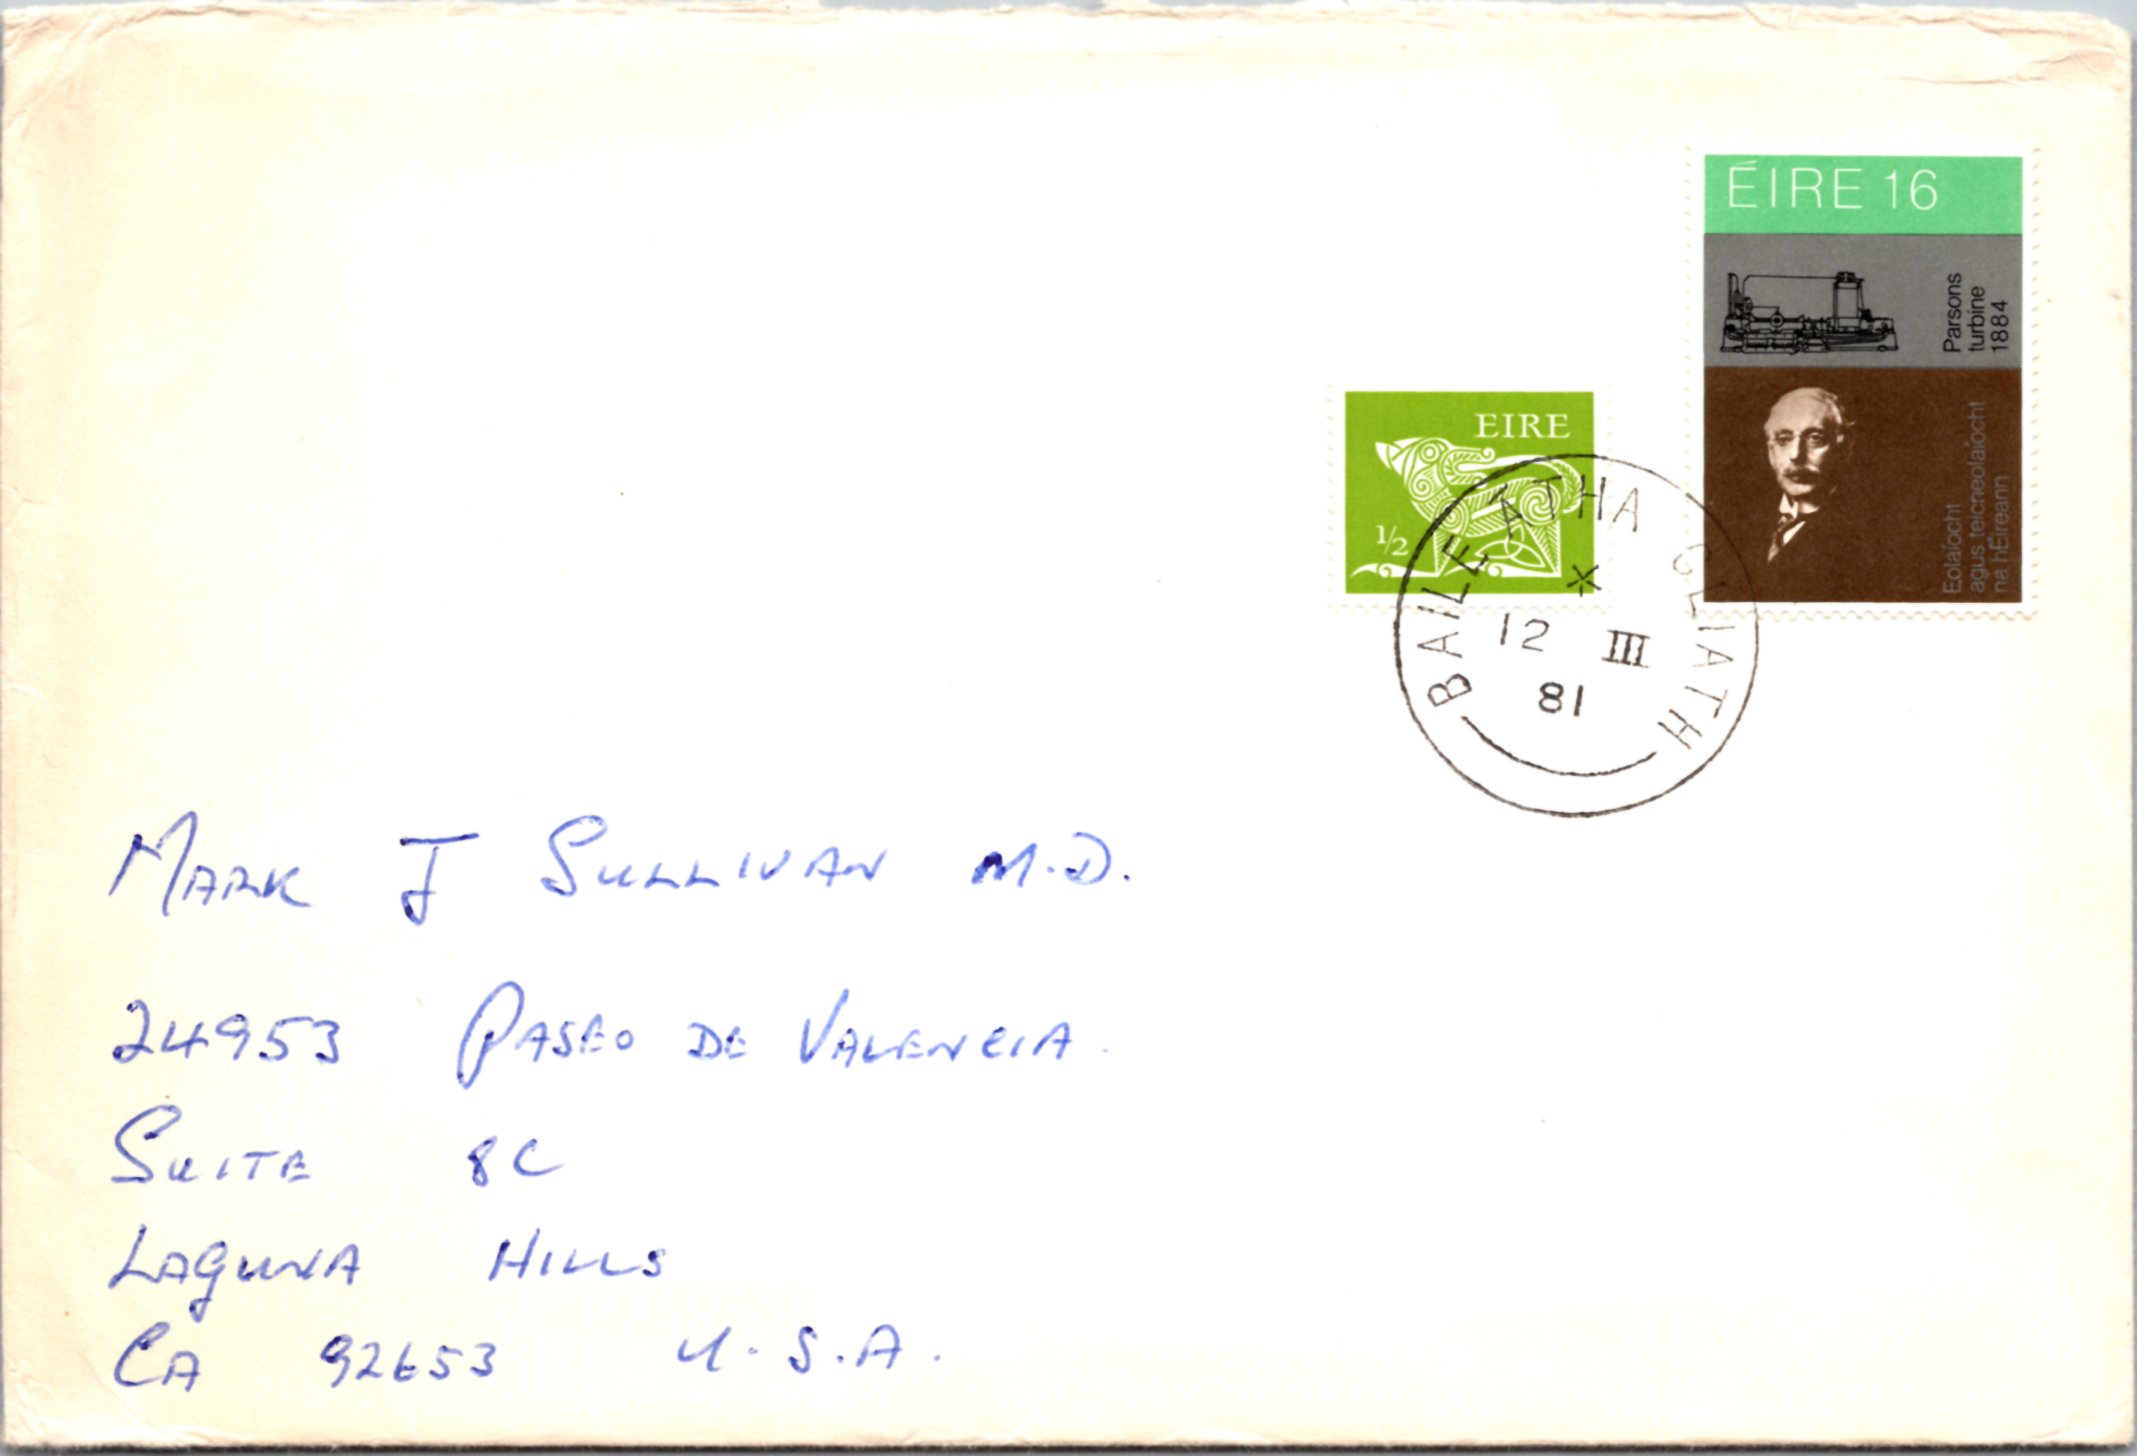 ÉIRE 16
Parsons
turbine
1884
Eolaíocht
agus teicneolaíocht
na hÉireann
EIRE
1/2
BAILE ÁTHA CLIATH
12 III
81
MARK J SULLIVAN M.D.
24953 PASEO DE VALENCIA.
SUITE 8C
LAGUNA HILLS
CA 92653 U.S.A.